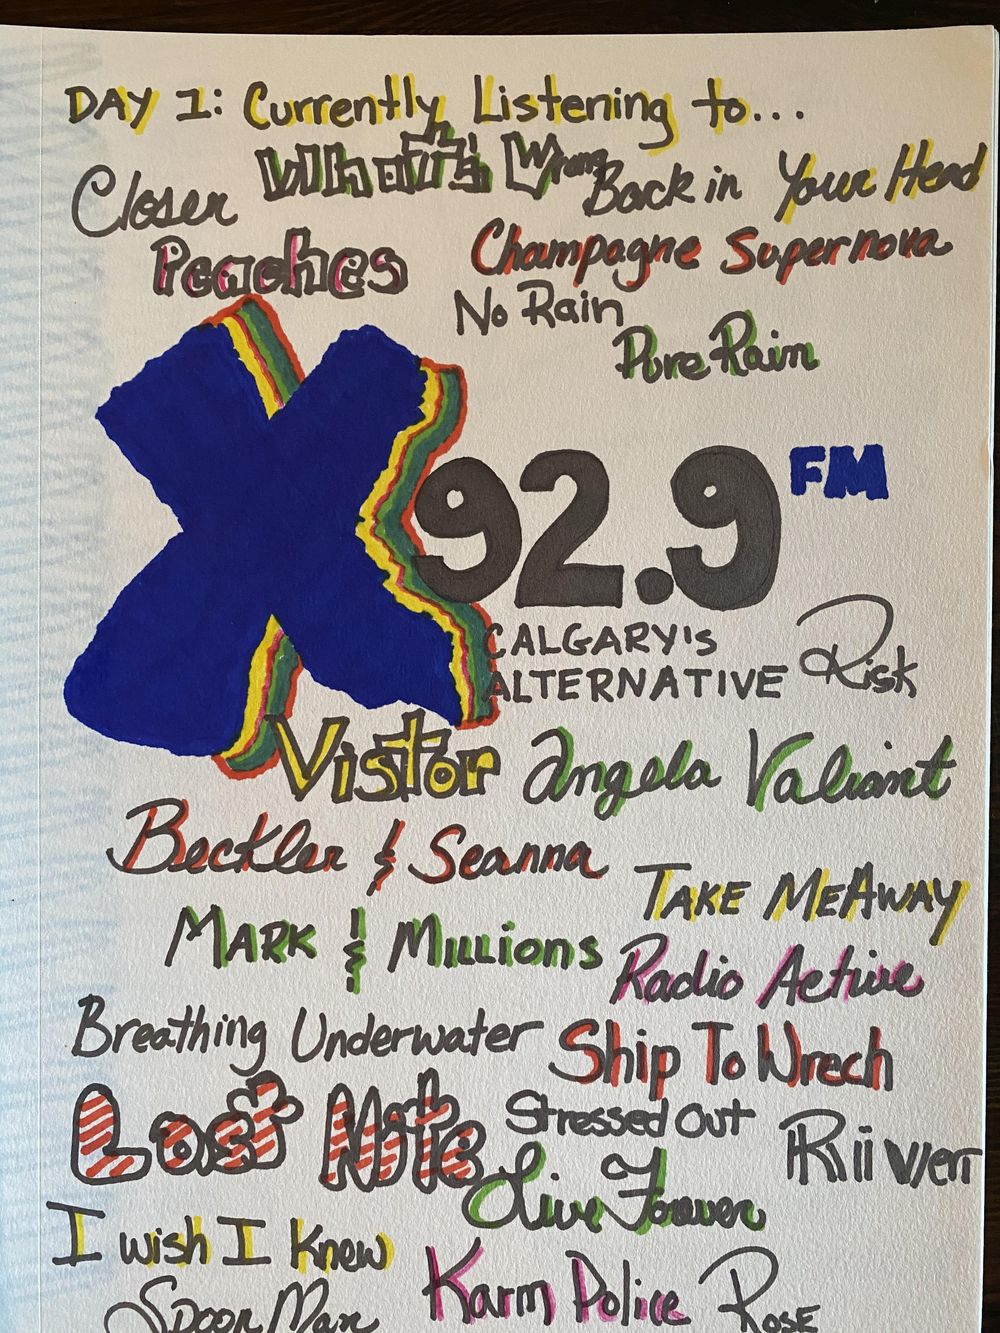 DAY 1: Currently Listening to...
Closer What's Wrong Back in Your Head
Peaches Champagne Supernova
No Rain
Pure Rain
X 92.9 FM
CALGARY'S
ALTERNATIVE Risk
Vistor Angela Valiant
Beckler & Seanna
TAKE ME AWAY
MARK & MILLIONS
Radio Active
Breathing Underwater Ship To Wrech
Last Nite Stressed Out
Riiverr
Live Forever
I wish I Knew
Karm Police ROSE
Spoon Man